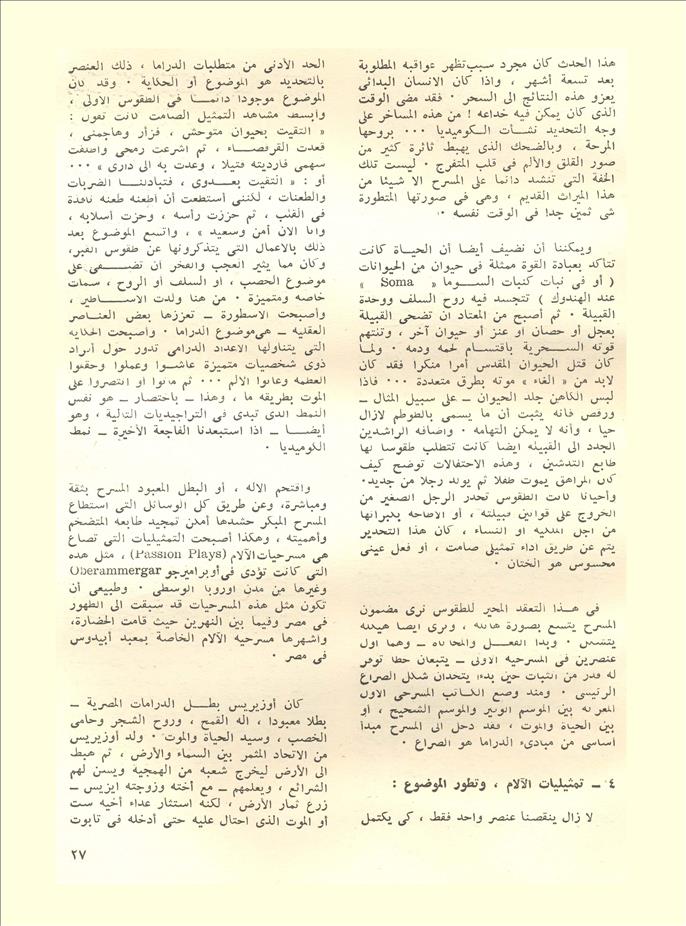 هذا الحدث كان مجرد سبب تظهر عواقبه المطلوبة
بعد تسعة أشهر ، واذا كان الانسان البدائى
يعزو هذه النتائج الى السحر ٠ فقد مضى الوقت
الذى كان يمكن فيه خداعه ! من هذه المساخر على
وجه التحديد نشأت الكوميديا ٠٠٠ بروحها
المرحة ، وبالضحك الذى يهبط ثائرة كثير من
صور القلق والألم فى قلب المتفرج ٠ ليست تلك
الخفة التى تنشد دائما على المسرح الا شيئا من
هذا الميراث القديم ، وهى فى صورتها المتطورة
شى ثمين جدا فى الوقت نفسه ٠
ويمكننا أن نضيف أيضا أن الحياة كانت
تتأكد بعبادة القوة ممثلة فى حيوان من الحيوانات
( أو فى نبات كنبات السوما « Soma »
عند الهندوك ) تتجسد فيه روح السلف ووحدة
القبيلة ٠ ثم أصبح من المعتاد أن تضحى القبيلة
بعجل أو حصان أو عنز أو حيوان آخر ، وتنتهم
قوته السحرية باقتسام لحمه ودمه ٠ ولما
كان قتل الحيوان المقدس أمرا منكرا فقد كان
لابد من « الغاء » موته بطرق متعددة ٠٠٠ فاذا
لبس الكاهن جلد الحيوان ــ على سبيل المثال ــ
ورقص فانه يثبت أن ما يسمى بالطوطم لازال
حيا ، وأنه لا يمكن التهامه ٠ واضافه الراشدين
الجدد الى القبيله ايضا كانت تتطلب طقوسا لها
طابع التدشين ، وهذه الاحتفالات توضح كيف
كان المراهق يموت طفلا ثم يولد رجلا من جديد٠
وأحيانا كانت الطقوس تحذر الرجل الصغير من
الخروج على قوانين قبيلته ، أو الاطاحه بكبرائها
من اجل الملكيه او النساء ، كان هذا التحذير
يتم عن طريق اداء تمثيلى صامت ، أو فعل عينى
محسوس هو الختان ٠
فى هذا التعقد المحير للطقوس نرى مضمون
المسرح يتسع بصورة هائله ، ونرى ايضا هيكله
يتشكل ٠ وبدا الفعل والمحاكاه ــ وهما اول
عنصرين فى المسرحيه الاولى ــ يتبعان خطا توفر
له قدر من الثبات حين بدءا يتحدان شكل الصراع
الرئيسى ٠ ومنذ وضع الكاتب المسرحى الاول
المعركه بين الموسم الوفير والموسم الشحيح ، أو
بين الحياة والموت ، فقد دخل الى المسرح مبدأ
أساسى من مبادىء الدراما هو الصراع ٠
٤ ــ تمثيليات الآلام ، وتطور الموضوع :
لا زال ينقصنا عنصر واحد فقط ، كى يكتمل
الحد الأدنى من متطلبات الدراما ، ذلك العنصر
بالتحديد هو الموضوع أو الحكاية ٠ وقد كان
الموضوع موجودا دائما فى الطقوس الأولى ،
وابسط مشاهد التمثيل الصامت كانت تقول :
« التقيت بحيوان متوحش ، فزأر وهاجمنى ،
قعدت القرفصاء ، ثم اشرعت رمحى وأطلقت
سهمى فارديته قتيلا ، وعدت به الى دارى » ٠٠٠
أو : « التقيت بعدوى ، فتبادلنا الضربات
والطعنات ، لكننى أستطعت أن أطعنه طعنه نافذة
فى القلب ، ثم حززت رأسه ، وحزت أسلابه ،
وانا الان آمن وسعيد » ، واتسع الموضوع بعد
ذلك بالاعمال التى يتذكرونها عن طقوس القبر،
وكان مما يثير العجب والفخر ان تضفى على
موضوع الخصب ، او السلف أو الروح ، سمات
خاصه ومتميزة ٠ من هنا ولدت الاساطير ،
وأصبحت الاسطورة ــ تعززها بعض العناصر
العقليه ــ هى موضوع الدراما ٠ وأصبحت الحكايه
التى يتناولها الاعداد الدرامى تدور حول أفراد
ذوى شخصيات متميزة عاشوا وعملوا وحققوا
العظمه وعانوا الالم ٠٠٠ ثم ماتوا او انتصروا على
الموت بطريقه ما ، وهذا ــ باختصار ــ هو نفس
النمط الذى تبدى فى التراجيديات التالية ، وهو
أيضا ــ اذا استبعدنا الفاجعة الأخيرة ــ نمط
الكوميديا ٠
واقتحم الاله ، أو البطل المعبود المسرح بثقة
ومباشرة، وعن طريق كل الوسائل التى استطاع
المسرح المبكر حشدها أمكن تمجيد طابعه المتضخم
وأهميته ، وهكذا أصبحت التمثيليات التى تصاغ
هى مسرحيات الآلام (Passion Plays) ، مثل هذه
التى كانت تؤدى فى أوبراميرجو Oberammergar
وغيرها من مدن اوروبا الوسطى ٠ وطبيعى أن
تكون مثل هذه المسرحيات قد سبقت الى الظهور
فى مصر وفيما بين النهرين حيث قامت الحضارة،
واشهرها مسرحيه الآلام الخاصة بمعبد أبيدوس
فى مصر ٠
كان أوزيريس بطل الدرامات المصرية ــ
بطلا معبودا ، اله القمح ، وروح الشجر وحامى
الخصب ، وسيد الحياة والموت ٠ ولد أوزيريس
من الاتحاد المثمر بين السماء والأرض ، ثم هبط
الى الأرض ليخرج شعبه من الهمجية ويسن لهم
الشرائع ، ويعلمهم ــ مع أخته وزوجته ايزيس ــ
زرع ثمار الأرض ، لكنه استثار عداء أخيه ست
أو الموت الذى احتال عليه حتى أدخله فى تابوت
٢٧